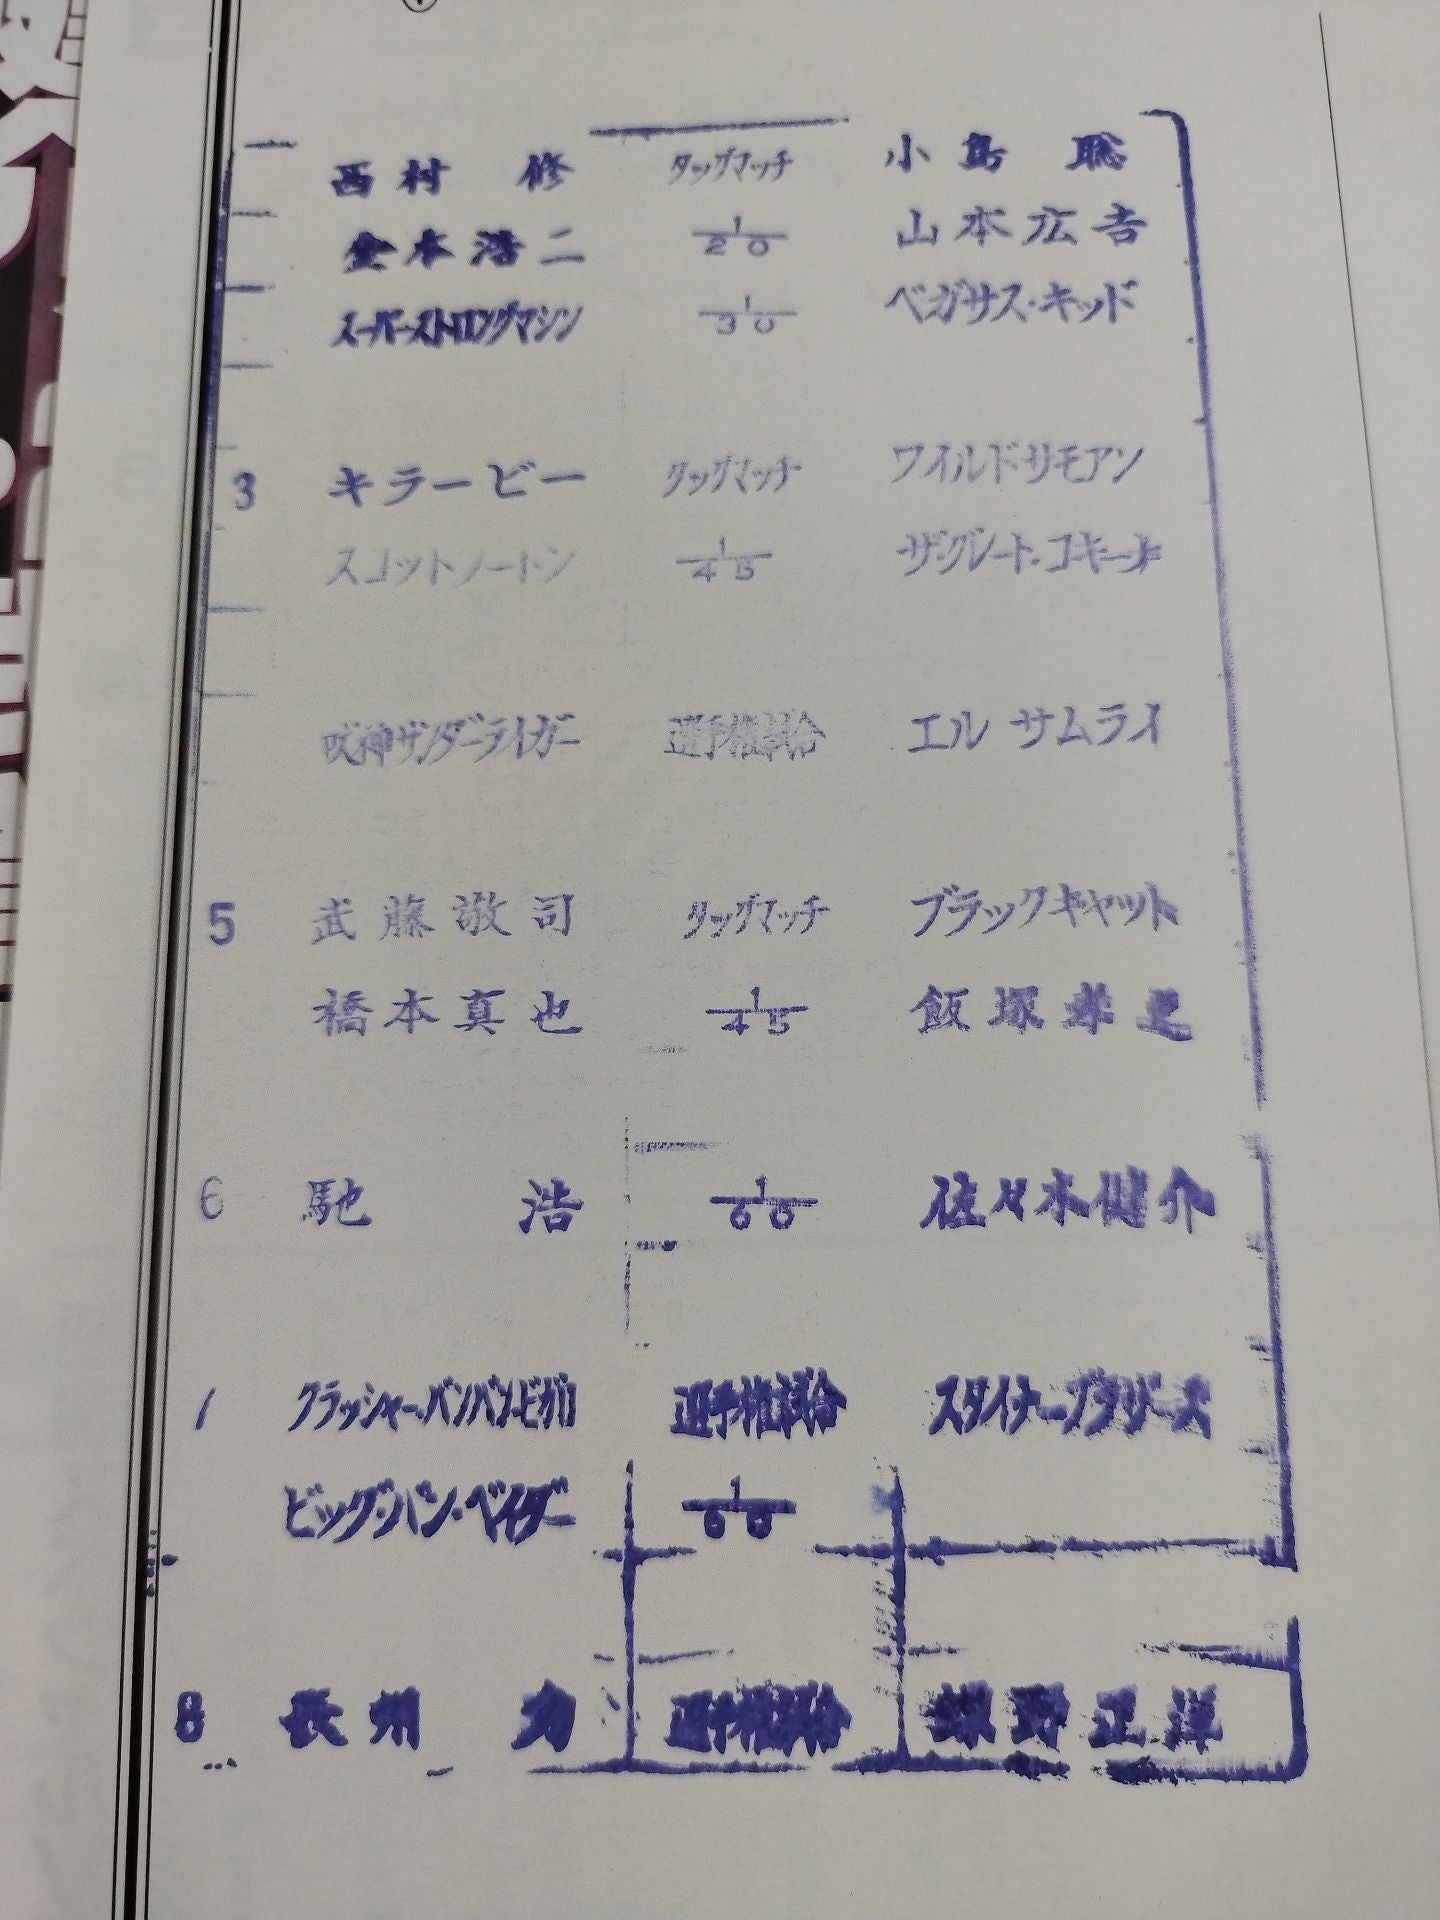 西村 修 タッグマッチ 小島 聡
金本浩二 1/20 山本広吉
スーパーストロングマシン 1/30 ペガサス・キッド
3 キラービー タッグマッチ ワイルドサモアン
スコットノートン 1/45 ザ・グレート・コキーナ
獣神サンダーライガー 選手権試合 エル サムライ
5 武藤敬司 タッグマッチ ブラックキャット
橋本真也 1/45 飯塚孝之
6 馳 浩 1/60 佐々木健介
クラッシャー・バンバン・ビガロ 選手権試合 スタイナーブラザーズ
ビッグ・バン・ベイダー 1/60
8 長州 力 選手権試合 蝶野正洋